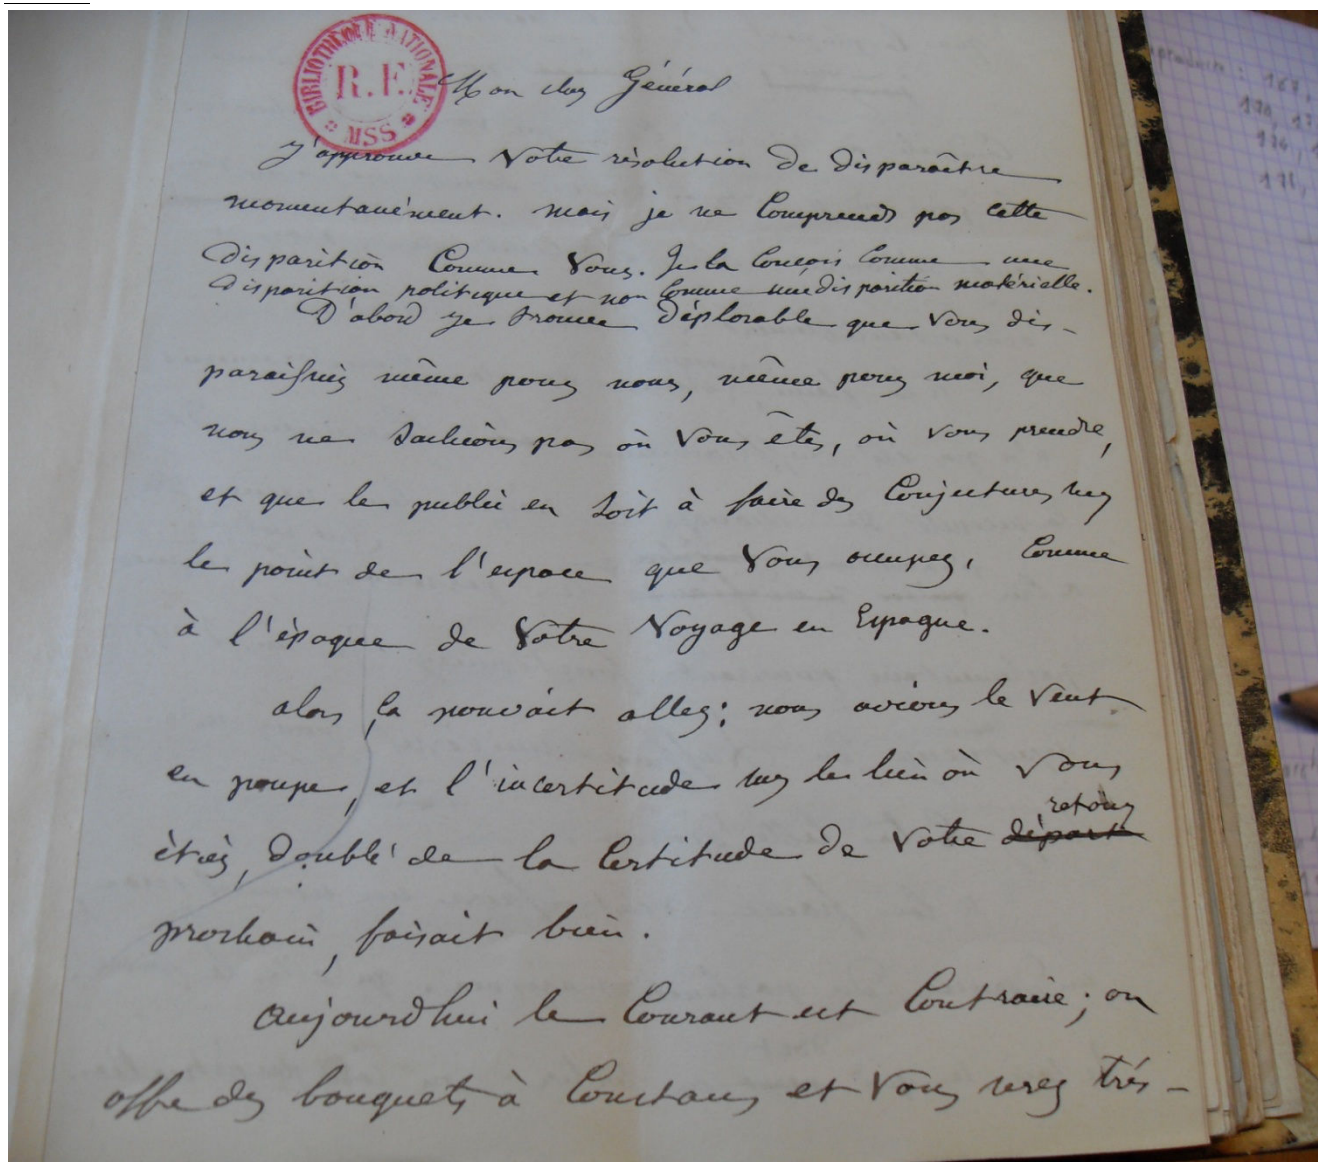 BIBLIOTHEQUE NATIONALE
R.F.
MSS
Mon cher Général
J'approuve Votre résolution de disparaître
momentanément. mais je ne Comprends pas cette
disparition Comme Vous. Je la Conçois Comme une
disparition politique et non Comme une disparition matérielle.
D'abord je trouve déplorable que Vous dis-
paraissiez même pour nous, même pour moi, que
nous ne sachions pas où Vous êtes, où vous prendre,
et que le public en soit à faire des Conjectures sur
le point de l'espace que Vous occupez, Comme
à l'époque de Votre Voyage en Espagne.
alors ça pouvait aller; nous avions le vent
en poupe, et l'incertitude sur le lieu où Vous
retour
étiez, doublé de la Certitude de Votre départ
prochain, faisait bien.
aujourd'hui le Courant est Contraire; on
offre des bouquets à Constans et Vous serez très-
167,
170, 17
174,